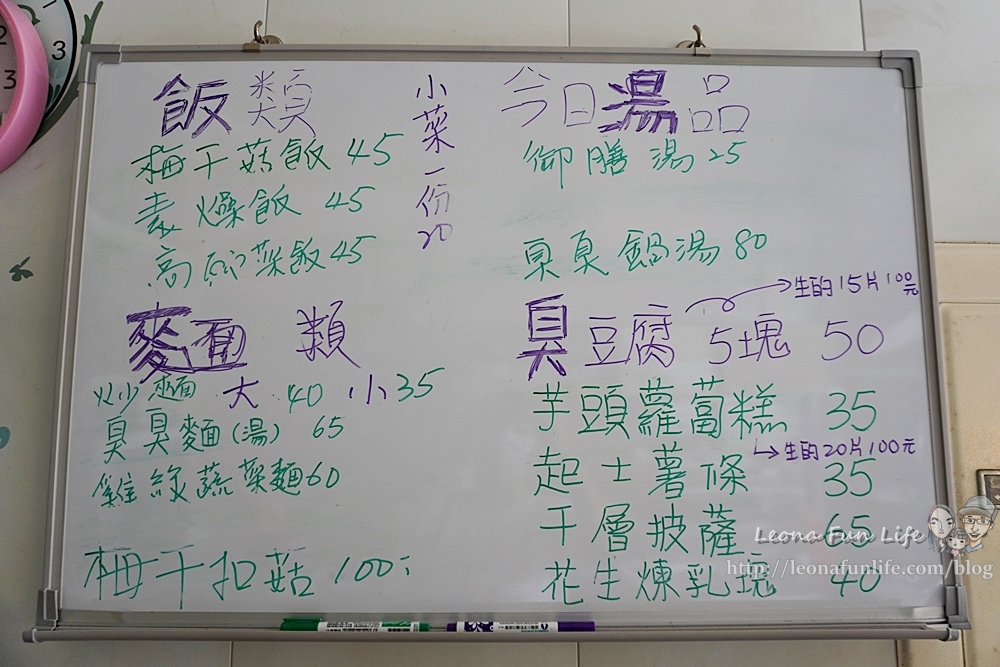 飯類
梅干菇飯 45
素燥飯 45
高麗菜飯 45
小菜一份20
麵類
炒麵 大 40 小 35
臭臭麵(湯) 65
雞絲蔬菜麵60
梅干扣菇 100
今日湯品
御膳湯 25
臭臭鍋湯 80
臭豆腐 5塊 50
生的15片100元
芋頭蘿蔔糕 35
生的20片100元
起士薯條 35
千層披薩 65
花生煉乳塊 40
Leona Fun Life
http://leonafunlife.com/blog
2
3
3